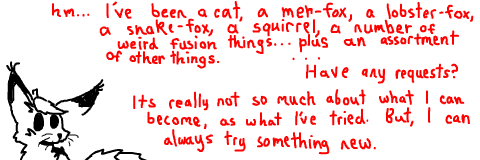 hm... I've been a cat, a mer-fox, a lobster-fox,
a snake-fox, a squirrel, a number of
weird fusion things... plus an assortment
of other things. ...
Have any requests?
Its really not so much about what I can
become, as what I've tried. But, I can
always try something new.